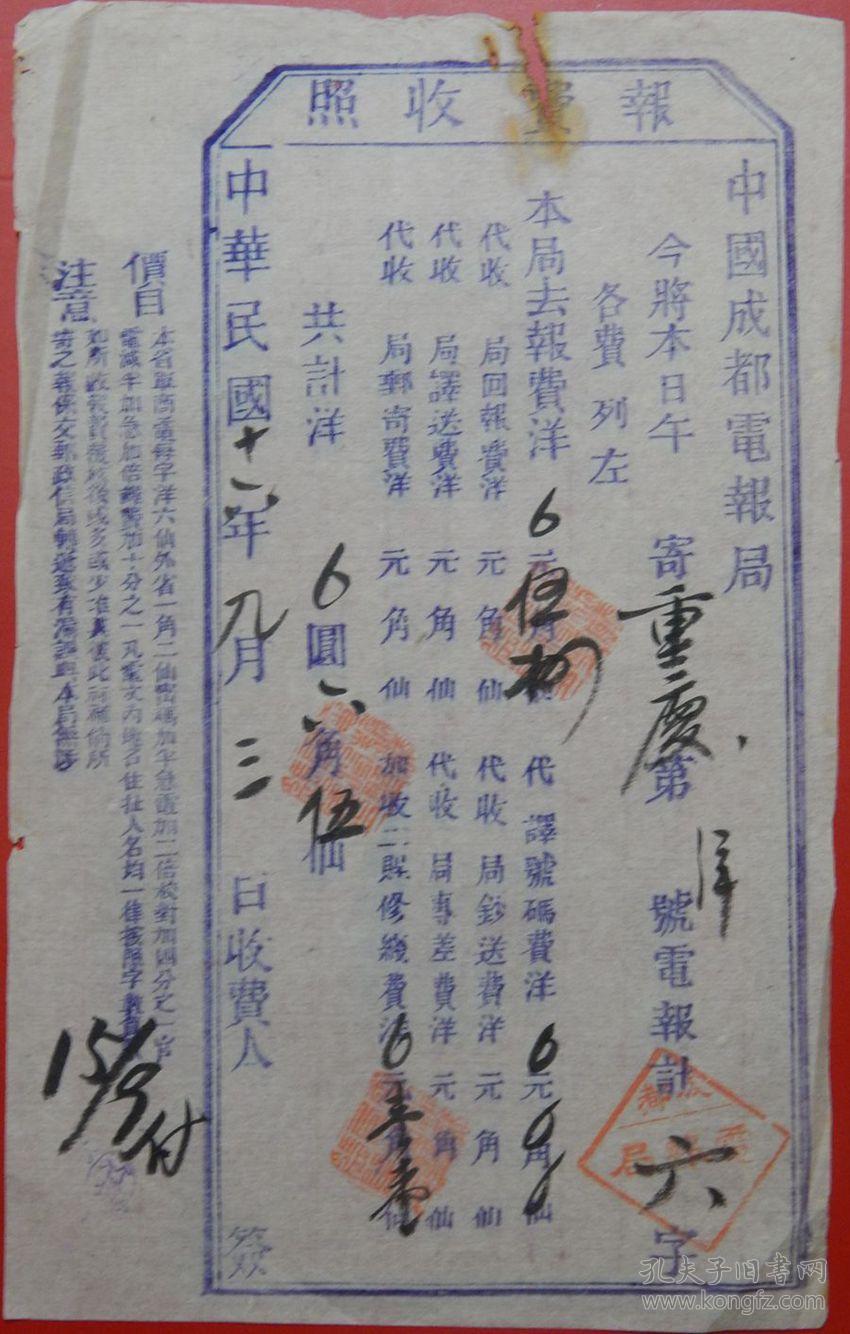 報費收照
中國成都電報局
今將本日午 寄重慶第 號電報計六字
各費列左
本局去報費洋 元角仙 代譯號碼費洋 元角仙
代收 局回報費洋 元角仙 代收 局鈔送費洋 元角仙
代收 局譯送費洋 元角仙 代收 局專差費洋 元角仙
代收 局郵寄費洋 元角仙 加收二賬修綫費洋 元角仙
共計洋 6圓六角伍仙
中華民國十一年九月三日收費人 簽
價目
本省華商電每字洋六仙外省一角二仙密碼加半急電加二倍校對加四分之一官
電減半加急加倍 加十分之一凡電文內地名住址人名均一律按照字數
注意
如所收報費 後或多或少准其彼此補償所
寄之報係交郵政信局轉遞致有 誤與本局無涉
15/9付
成都
電報局
孔夫子旧书网
www.kongfz.com